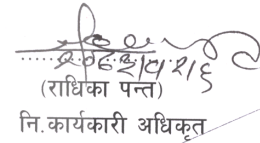 (राधिका पन्त)
नि.कार्यकारी अधिकृत